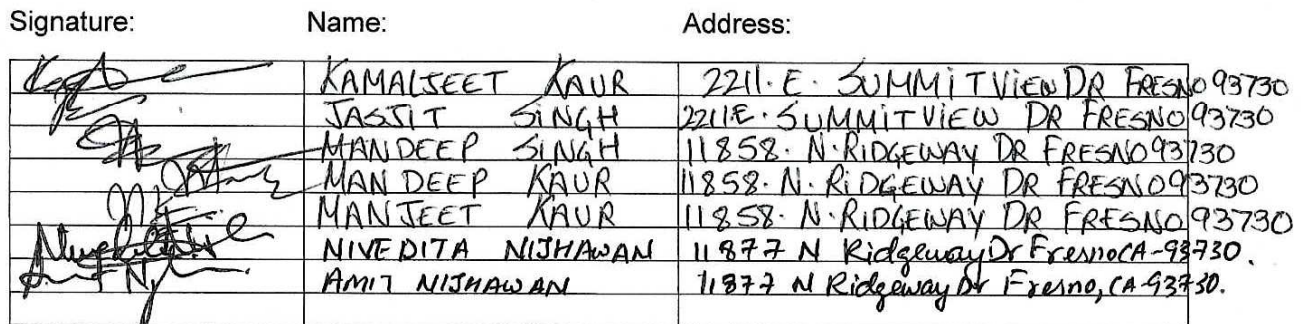 Signature: Name: Address:
KAMALJEET KAUR 2211. E. SUMMITVIEW DR FRESNO 93730
JASJIT SINGH 2211E. SUMMITVIEW DR FRESNO 93730
MANDEEP SINGH 11858. N. RIDGEWAY DR FRESNO 93730
MANDEEP KAUR 11858. N. RIDGEWAY DR FRESNO 93730
MANJEET KAUR 11858. N. RIDGEWAY DR FRESNO 93730
NIVEDITA NIJHAWAN 11877 N Ridgeway Dr Fresno CA-93730.
AMIT NIJHAWAN 11877 N Ridgeway Dr Fresno, CA-93730.